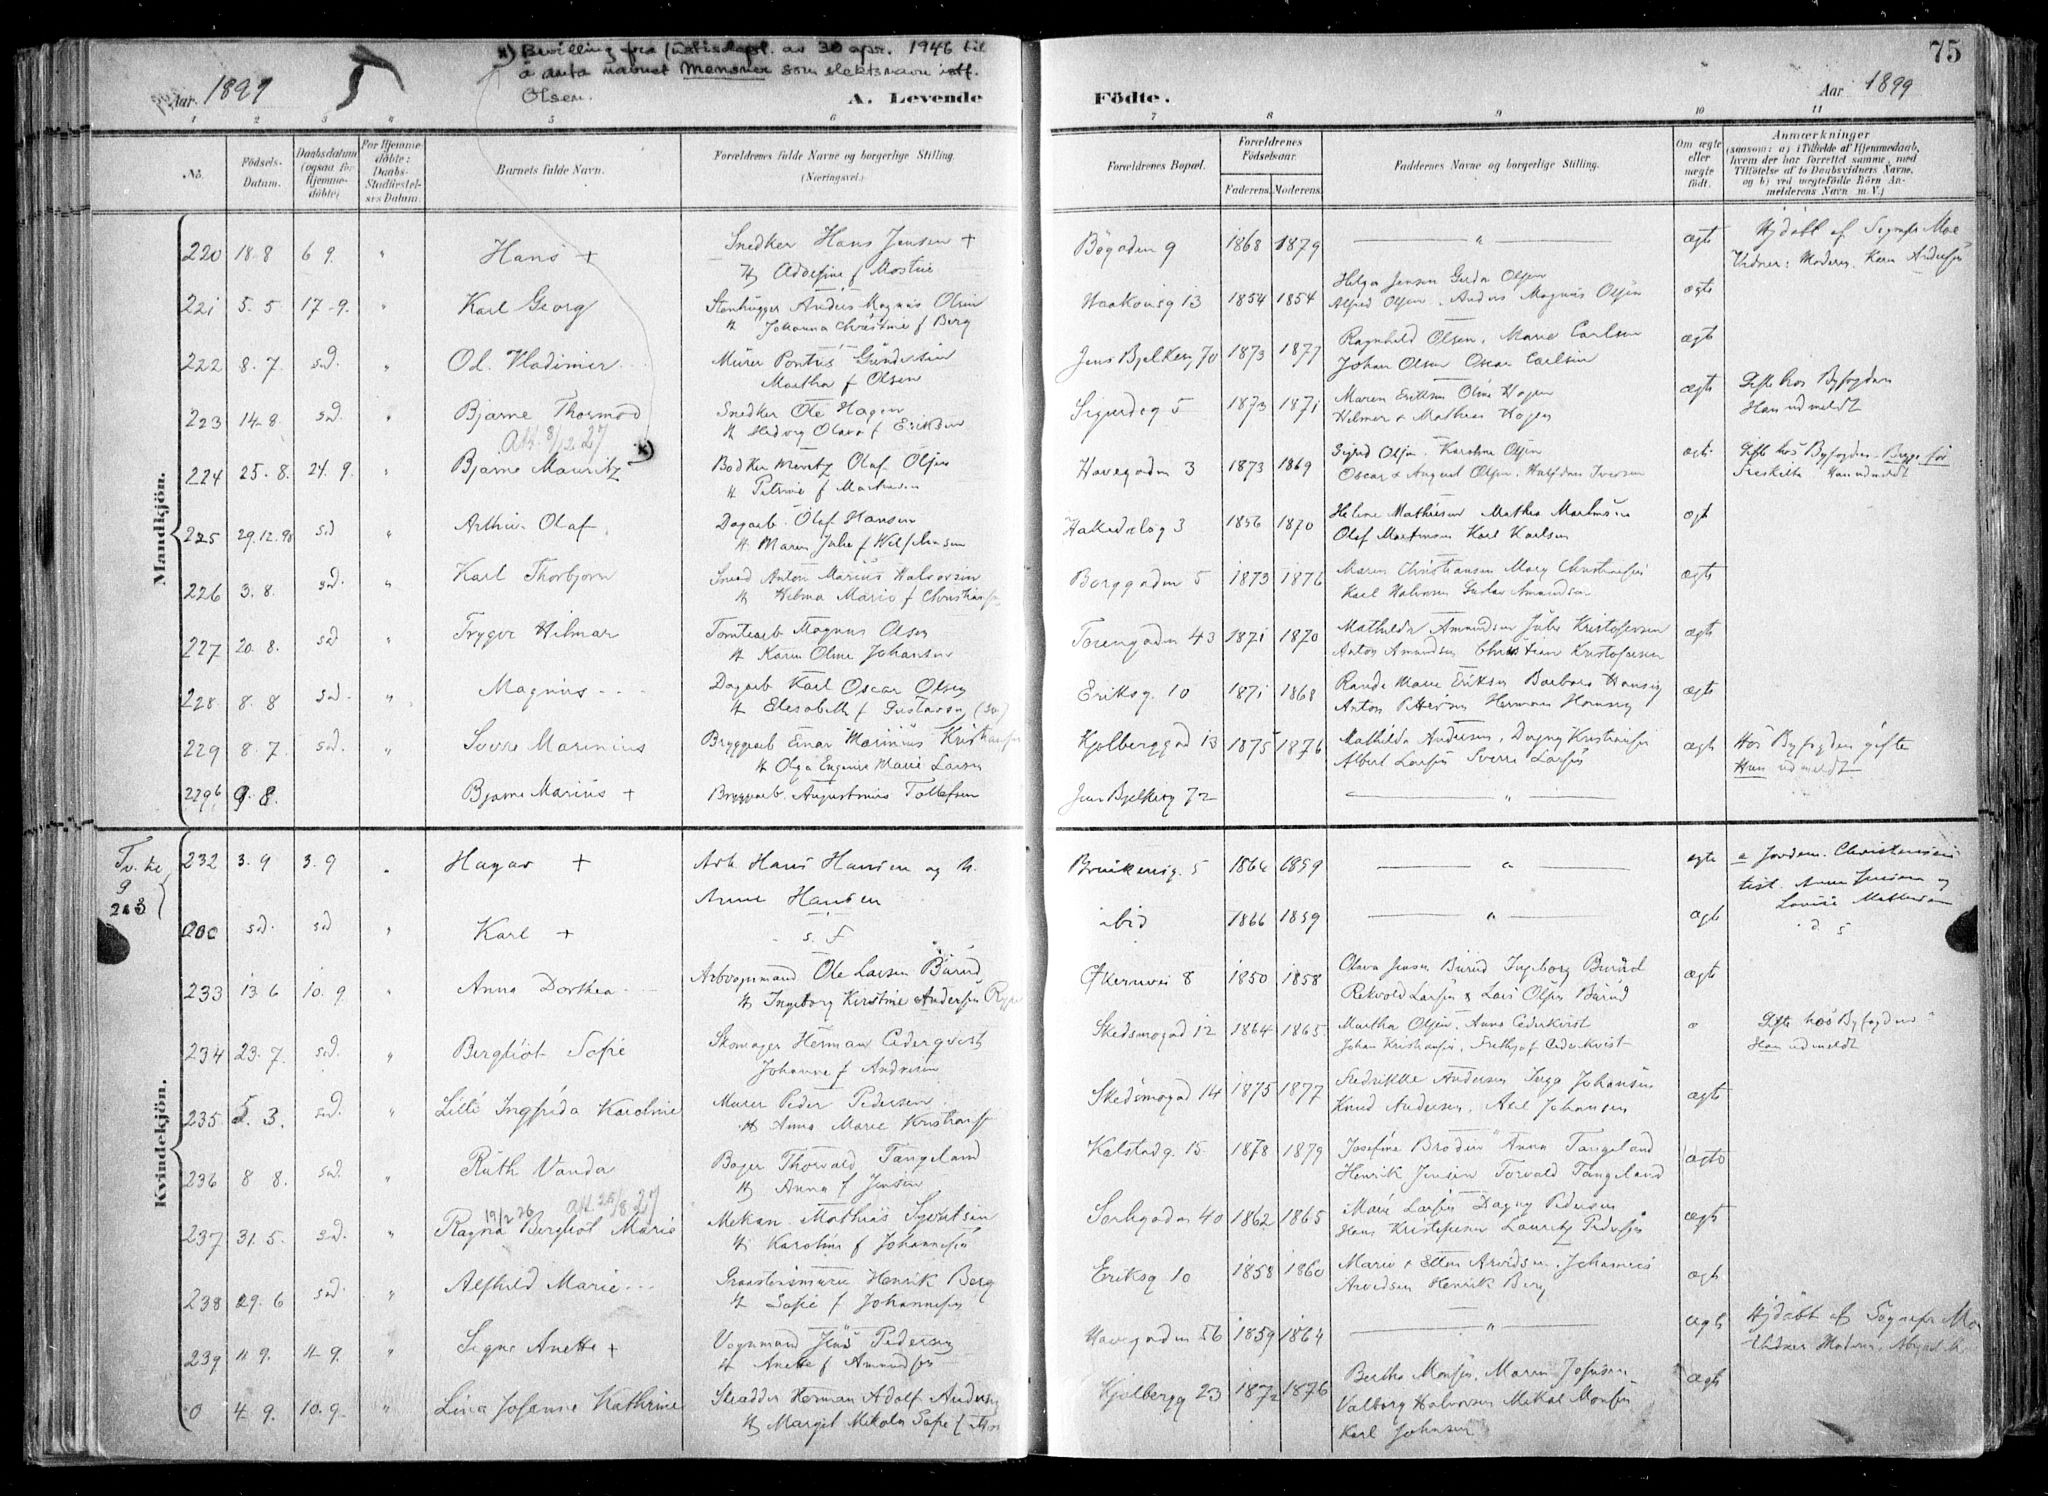 75
x) Bevilling fra Justisdept. av 30 apr. 1946 til
å anta navnet Mensner som slektsnavn istf.
Olsen.
Aar 1899
A. Levende
Födte.
Aar 1899
1 2 3 " 5 6 7 8 9 10 11
No.
Födsels-
Datum.
Daabsdatum
(ogsaa för
Hjemme-
döbte)
For Hjemme-
döbte:
Daabs-
Stadfæstel-
ses Datum.
Barnets fulde Navn.
Forældrenes fulde Navne og borgerlige Stilling.
(Næringsvei.)
Forældrenes Bopæl.
Forældrenes
Födselsaar.
Faderens. Moderens.
Faddernes Navne og borgerlige Stilling.
Om ægte
eller
uægte
födt.
Anmærkninger
(saasom: a) i Tilfælde af Hjemmedaab,
hvem der har forrettet samme, med
Tilföielse af to Daabsvidners Navne,
og b) ved uægtefödte Börn An-
melderens Navn m. V.)
Mandkjön.
220 18-8 6 9. " Hans +
Snedker Hans Jensen +
Bögaden 9 1868 1879 " ægte
Vidner: Moderen. Karen Andersen
221 5-5 17-9. " Karl Georg
Stenhugger Anders Magnus Olsen
H Johanna Christine f Berg
Haakonsg 13 1854 1854
Helga Jensen Gerda Olsen
Alfred Olsen. Anders Magnus Olsen
ægte
222 8-7. sd. " Ol. Vladimir
Murer Pontus Gundersen
Martha f Olsen
Jens Bjelkesg 70 1873 1877
Ragnhild Olsen. Marie Carlsen
Johan Olsen Oscar Carlsen
ægte
223 14-8. sd. " Bjarne Thormod
Snedker Ole Hagen
H Hedvig Olava f Eriksen
Sigurdsg 5 1873 1871
Maren Eriksen Oline Hagen
Hilmar & Mathias Hagen
ægte
Gifte hos Byfogden
Han udmeldt
Att. 8/12 27 x)
224 25.8. 24.9. " Bjarne Mauritz
Bødker Mauritz Olaf Olsen
H Petrine f Martinsen
Havegaden 3 1873 1869
Sigrid Olsen. Karoline Olsen
Oscar & August Olsen. Halfdan Iversen
ægte
Gift hos Byfogden. Begge før
Han udmeldt
225 29.12.98 sd " Arthur Olaf
Dagarb. Olaf Hansen
H Maren Julie f Vilhelmsen
Hakedalsg 3 1856 1870
Helene Mathisen Mathea Martinsen
Olaf Martinsen Karl Karlsen
ægt
226 3.8. sd. " Karl Thorbjørn
Smed Anton Marius Halvorsen
H Hilma Marie f Christiansen
Borggaden 5 1873 1876
Maren Christiansen Mary Christiansen
Karl Halvorsen Gustav Amundsen
ægte
227 20.8. sd " Trygve Hilmar
Tomtearb Magnus Olsen
H Karen Oline Johansen
Tøiengaden 43 1871 1870
Mathilde Amundsen Julie Kristofersen
Anton Amundsen Christian Kristofersen
ægte
228 8.8 sd. " Magnus
Dagarb Karl Oscar Olsen
H Elisabeth f Gustavsen (sv)
Eriksg. 10 1871 1868
Randa Marie Eriksen Barbara Hansen
Anton Pettersen Herman Hansen
ægte
229 8.7. sd. " Sverre Marinius
Bryggearb Einar Marinius Kristiansen
H Olga Eugenie Marie Larsen
Kjølberggad 13 1875 1876
Mathilda Andersen, Dagny Kristiansen
Albert Larsen Sverre Larsen
ægte
Hos Byfogden gifte
Han udmeldt
229b 9.8. Bjarne Marius +
Bryggearb. Augustinus Tollefsen
Jens Bjelkesg 72 "
Kvindekjön.
232 3.9 3.9 " Hagar +
Arb Hans Hansen og H.
Anne Hansen
5 1864 1859 " ægte
a Jordem. Christensen
test. Anna Jensen og
Lovise Mathisen
sd. sd " Karl +
s. f
ibid 1866 1859 " ægte
233 13.6 10.9. " Anna Dorthea
Arbvognmand Ole Larsen Bårud
H Ingeborg Kirstine Andersen
Økernvei 8 1850 1858
Olava Jensen Bårud Ingeborg Bårud
Rikvold Larsen & Lars Olsen Bårud
ægte
234 23.7. sd. " Bergliot Sofie
Skomager Herman Cederqvist
Johanne f Andresen
Skedsmogad 12 1864 1865
Martha Olsen. Anna Cederkvist
Johan Kristiansen. Frithjof Cederkvist
"
Gifte hos Byfogden
Han udmeldt
235 5.3. sd. " Lilli Ingfrida Karoline
Murer Peder Pedersen
H Anna Marie Kristiansen
Skedsmogad 14 1875 1877
Fredrikke Andersen Inga Johansen
Knud Andersen, Axel Johansen
ægte
236 8 8. sd. " Ruth Vanda
Bager Thorvald Tangeland
H Anna f Jensen
Kalstadg. 15. 1878 1879
Josefine Broden Anna Tangeland
Henrik Jensen Torvald Tangeland
ægte
19/2 26 att 25/8 27
237 31.5. sd. " Ragna Bergliot Marie
Mekan. Mathias Syvertsen
H Karoline f Johannesen
Sarsgaden 40 1862 1865
Marie Larsen Dagny Pedersen
Hans Kristiansen Lauritz Pedersen
ægte
238 29.6 sd. " Alfhild Marie
Graastensmurer Henrik Berg
H Sofie f Johannesen
Eriksg 10 1858 1860
Marie & Ellen Arvidsen. Johannes
Arvidsen Henrik Berg
ægte
239 4.9. 4.9. " Signe Anette +
Vognmand Jens Pedersen
H Anette f Amundsen
Havegaden 56 1859 1864 " ægte
Hjdøbt af Sognepr Moe
Vidner Moderen,
0 4.9. 10.9. " Lina Josanne Kathrine
Skrædder Herman Adolf Andersen
H Margit Mikoline Sofie f
Kjølbergg 23 1872 1876
Bertha Monsen, Maren Johnsen
Valborg Halvorsen Mikal Monsen
Karl Johnsen
ægte